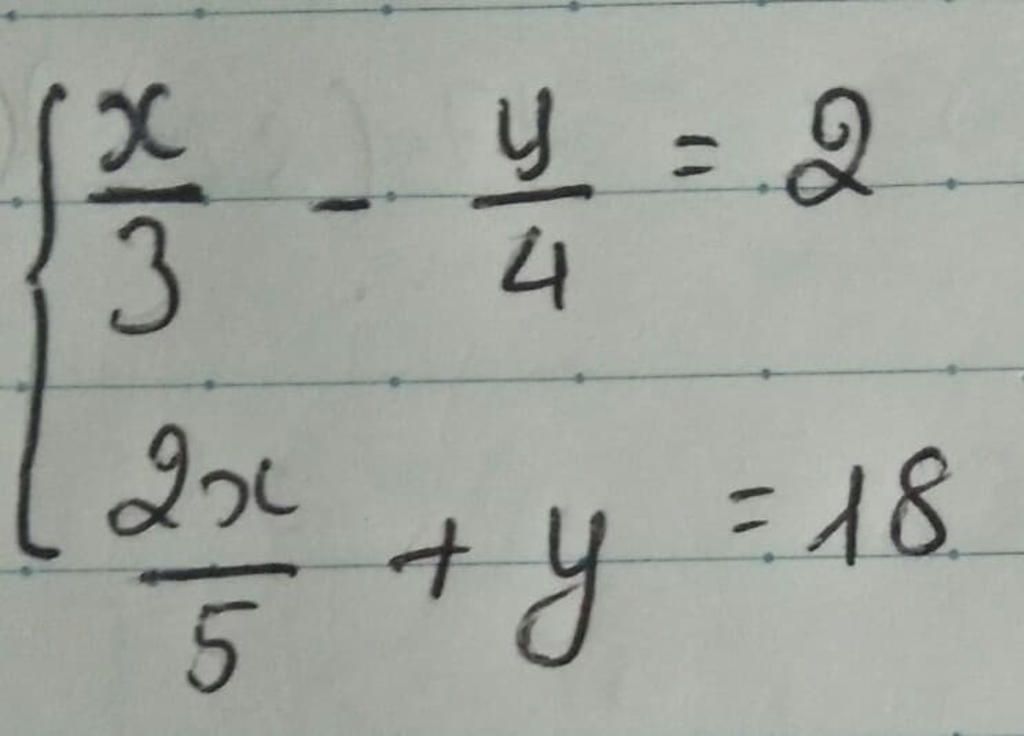 x/3 - y/4 = 2
2x/5 + y = 18